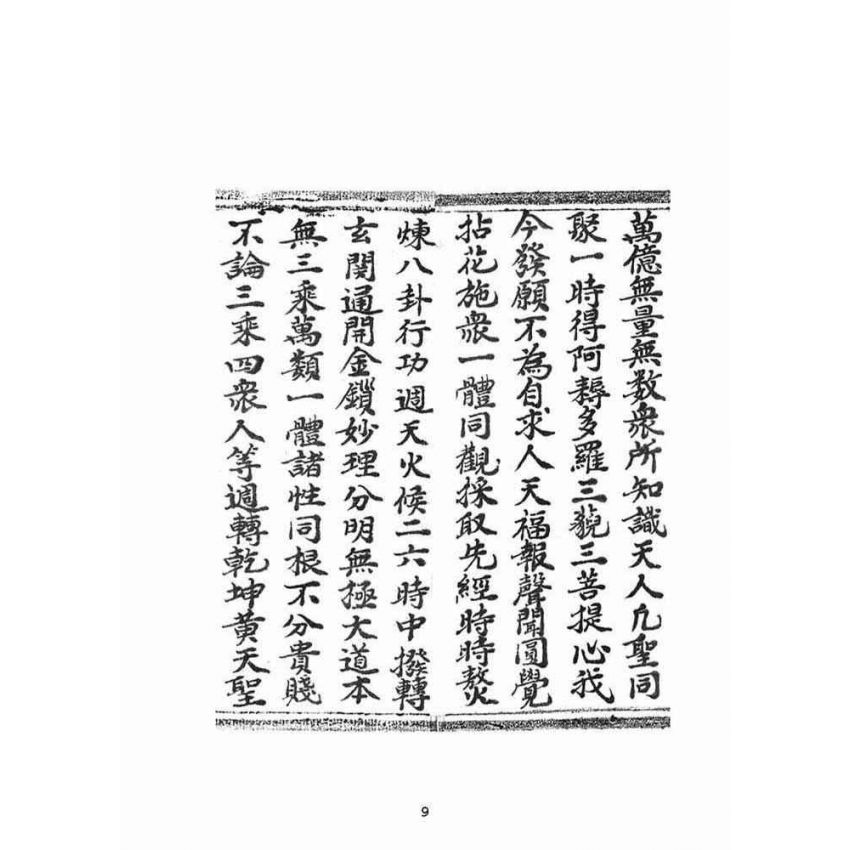 萬億無量無数衆所知識天人凢聖同
聚一時得阿耨多羅三藐三菩提心我
今發願不為自求人天福報聲聞圓覺
拈花施衆一體同觀採取先經時時熬
煉八卦行功週天火候二六時中撥轉
玄関通開金鎖妙理分明無極大道本
無三乘萬類一體諸性同根不分貴賤
不論三乘四衆人等週轉乾坤黃天聖
9